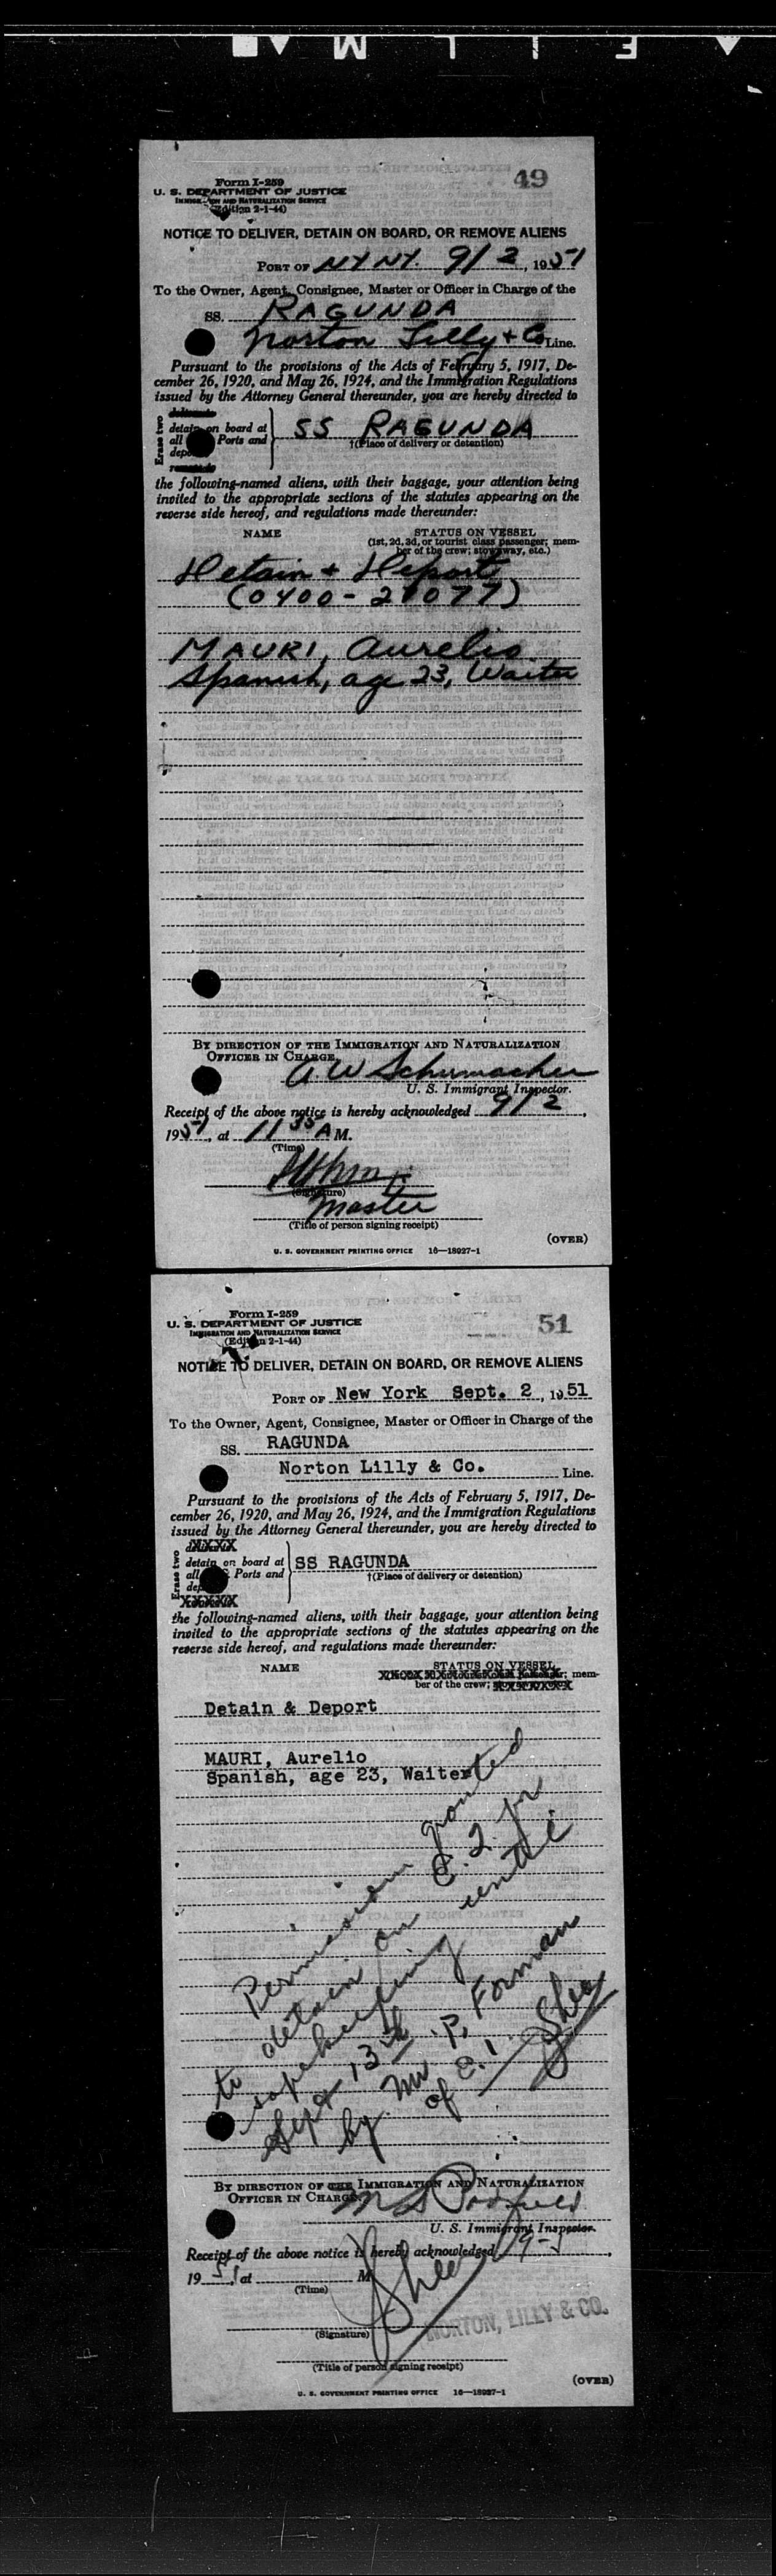 FILM
49
Form I-259
U. S. DEPARTMENT OF JUSTICE
IMMIGRATION AND NATURALIZATION SERVICE
(Edition 2-1-44)
NOTICE TO DELIVER, DETAIN ON BOARD, OR REMOVE ALIENS
PORT OF NY NY. 9/2, 1951
To the Owner, Agent, Consignee, Master or Officer in Charge of the
SS. RAGUNDA
Norton Lilly & Co Line.
Pursuant to the provisions of the Acts of February 5, 1917, De-
cember 26, 1920, and May 26, 1924, and the Immigration Regulations
issued by the Attorney General thereunder, you are hereby directed to
Erase two
detain on board at
all Ports and
SS RAGUNDA
†(Place of delivery or detention)
the following-named aliens, with their baggage, your attention being
invited to the appropriate sections of the statutes appearing on the
reverse side hereof, and regulations made thereunder:
NAME
STATUS ON VESSEL
(1st, 2d, 3d, or tourist class passenger; mem-
ber of the crew; stowaway, etc.)
Detain & Deport
(0400-21077)
MAURI, Aurelio
Spanish, age 23, Waiter
BY DIRECTION OF THE IMMIGRATION AND NATURALIZATION
OFFICER IN CHARGE
A. W Schumacher
U. S. Immigrant Inspector.
Receipt of the above notice is hereby acknowledged 9/2,
1951, at 11 35 A M.
(Time)
(Signature)
Master
(Title of person signing receipt)
(OVER)
U. S. GOVERNMENT PRINTING OFFICE 16—18927-1
51
Form I-259
U. S. DEPARTMENT OF JUSTICE
IMMIGRATION AND NATURALIZATION SERVICE
(Edition 2-1-44)
NOTICE TO DELIVER, DETAIN ON BOARD, OR REMOVE ALIENS
PORT OF New York Sept. 2, 1951
To the Owner, Agent, Consignee, Master or Officer in Charge of the
SS. RAGUNDA
Norton Lilly & Co. Line.
Pursuant to the provisions of the Acts of February 5, 1917, De-
cember 26, 1920, and May 26, 1924, and the Immigration Regulations
issued by the Attorney General thereunder, you are hereby directed to
Erase two
XXXXX
detain on board at
all Ports and
XXXXXX
SS RAGUNDA
†(Place of delivery or detention)
the following-named aliens, with their baggage, your attention being
invited to the appropriate sections of the statutes appearing on the
reverse side hereof, and regulations made thereunder:
NAME
STATUS ON VESSEL
mem-
ber of the crew;
Detain & Deport
MAURI, Aurelio
Spanish, age 23, Waiter
Permission granted
to detain on E. I. for
safekeeping until
Sept 13th
by Mr. P. Forman
of E. I. Shea
BY DIRECTION OF THE IMMIGRATION AND NATURALIZATION
OFFICER IN CHARGE
U. S. Immigrant Inspector.
Receipt of the above notice is hereby acknowledged 9-5,
1951, at M
(Time)
Shea
(Signature)
NORTON, LILLY & CO.
(Title of person signing receipt)
(OVER)
U. S. GOVERNMENT PRINTING OFFICE 16—18927-1